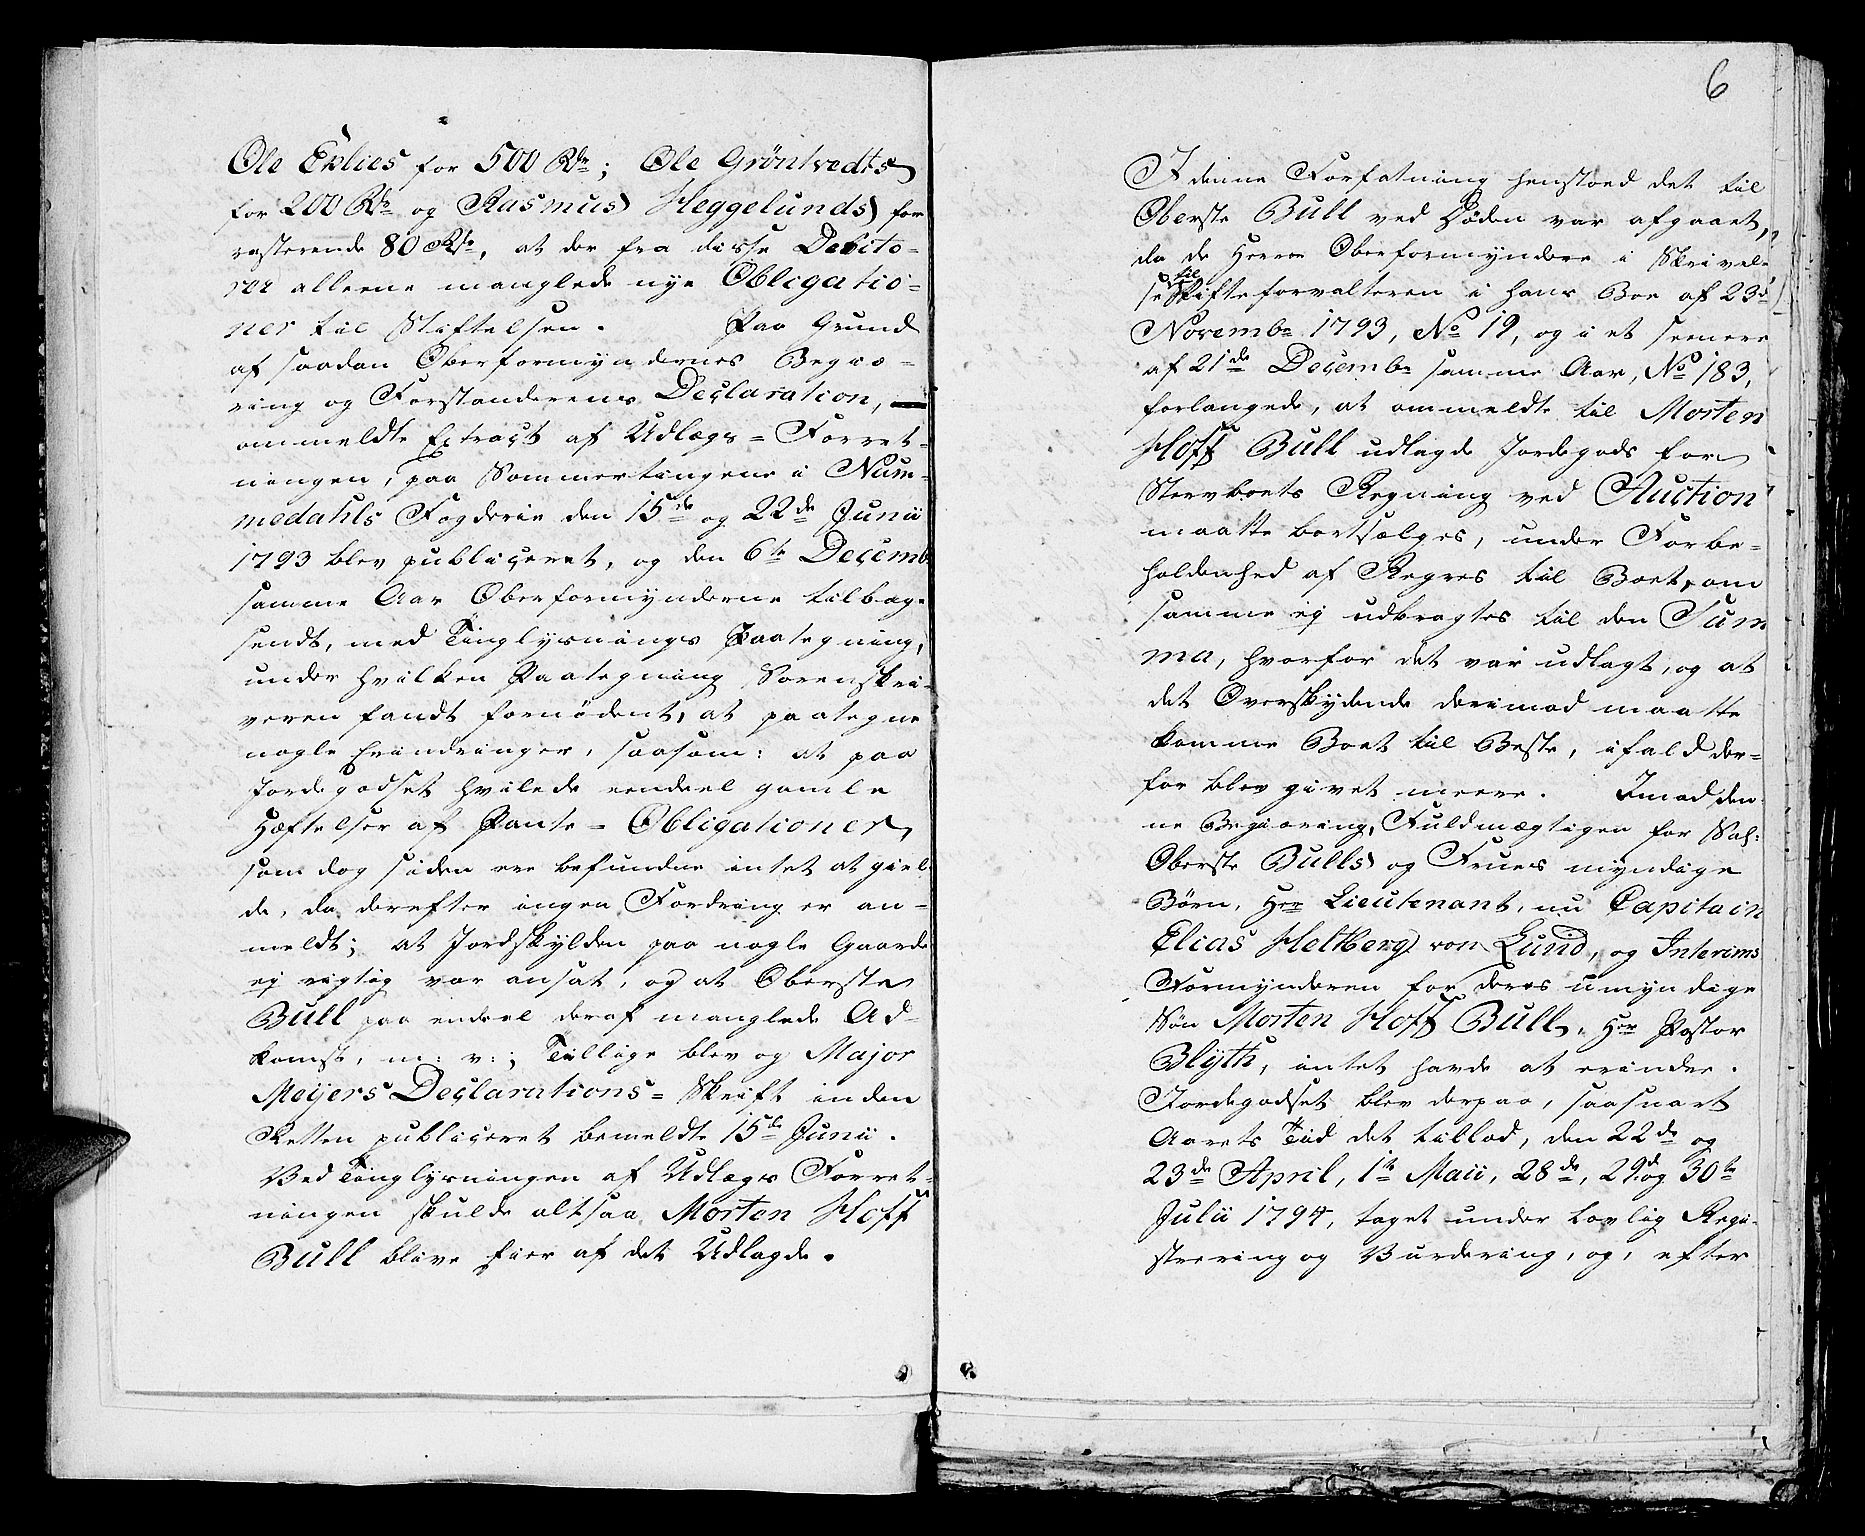 Ole Eklies for 500 Rdr; Ole Gröntvedts
for 200 Rdr og Rasmus Heggelunds for
resterende 80 Rdr, at der fra disse Debito-
rer alleene manglede nye Obligatio-
ner til Stiftelsen. Paa Grund
af saadan Oberformyndernes Begiæ-
ring og Forstanderens Declaration,
ommeldte Extract af Udlægs-Forret-
ningen, paa Sommertingene i Num-
medahls Fogderie den 15de og 22de Junii
1793 blev publiceret, og den 6te Decemb.
samme Aar Oberformynderne tilbage
sendt, med Tinglysnings Paategning,
under hvilken Paategning Sorenskri-
veren fandt fornødent, at paategne
nogle Erindringer, saasom: at paa
Jordegodset hvilede eendeel gamle
Hæftelser af Pante-Obligationer,
som dog siden ere befundne intet at giel-
de, da derefter ingen Fordring er an-
meldt; at Jordskylden paa nogle Gaarde
ej rigtig var ansat, og at Oberste
Bull paa endeel deraf manglede Ad-
komst, m: v:; Tillige blev og Major
Meijers Declarations-Skrift inden
Retten publiceret bemeldte 15de Junii.
Ved Tinglysningen af Udlægs Forret-
ningen skulde altsaa Morten Hoff
Bull blive Eier af det Udlagde.
6
I denne Forfatning henstoed det til
Oberste Bull ved Døden var afgaaet,
da de Herrer Oberformyndere i Skrivel-
se til Skifteforvalteren i hans Boe af 23de
Novembr 1793, No 19, og i et seenere
af 21de Decembr samme Aar, No 183,
forlangede, at ommeldte til Morten
Hoff Bull udlagde Jordegods for
Stervboets Regning ved Auction
maatte bortsælges, under Forbe-
holdenhed af Regres til Boet, om
samme ej udbragtes til den Sum
ma, hvorfor det var udlagt, og at
det Overskydende derimod maatte
komme Boet til Beste, ifald der-
for blev givet meere. Imod den-
ne Begiæring, Fuldmægtigen for Sal:
Oberste Bulls og Frues myndige
Børn, Hr Lieutenant, nu Capitain
Elias Heltberg von Lund, og Interims
Formynderen for deres umyndige
Søn Morten Hoff Bull, Hr Pastor
Blyth, intet havde at erindre.
Jordegodset blev derpaa, saasnart
Aarets Tiid det tillod, den 22de og
23de April, 1te Maii, 28de, 29d og 30te
Julii 1794, taget under lovlig Regi-
streering og Vurdering, og, efter